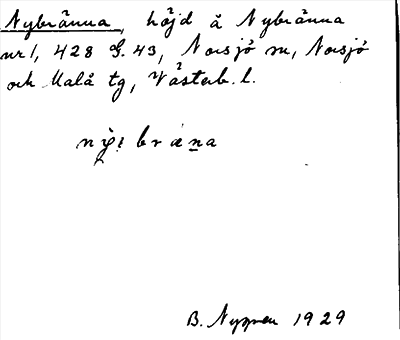 Nybränna, höjd å Nybränna
nr 1, 428 G. 43, Norsjö sn, Norsjö
och Malå tg, Västerb. l.
B. Nyman 1929